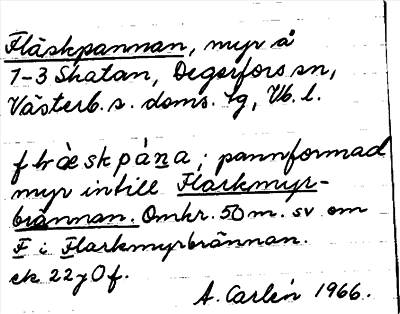 Fläskpannan, myr å
1-3 Skatan, Degerfors sn,
Västerb. s. doms. lg, Vb. l.
flræskpána; pannformad
myr intill Flarkmyr-
brännan. Omkr. 50 m. sv om
F i Flarkmyrbrännan.
ek 22y0f.
A. Carlén 1966.